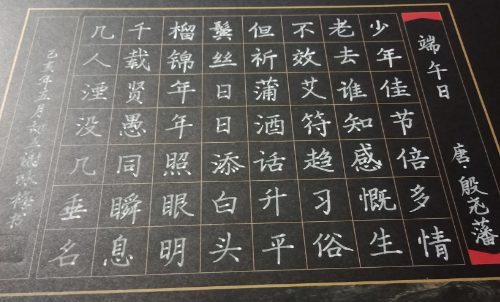 端午日 唐·殷尧藩
少年佳节倍多情
老去谁知感慨生
不效艾符趋习俗
但祈蒲酒话升平
鬓丝日日添白头
榴锦年年照眼明
千载贤愚同瞬息
几人湮没几垂名
己亥年五月 书